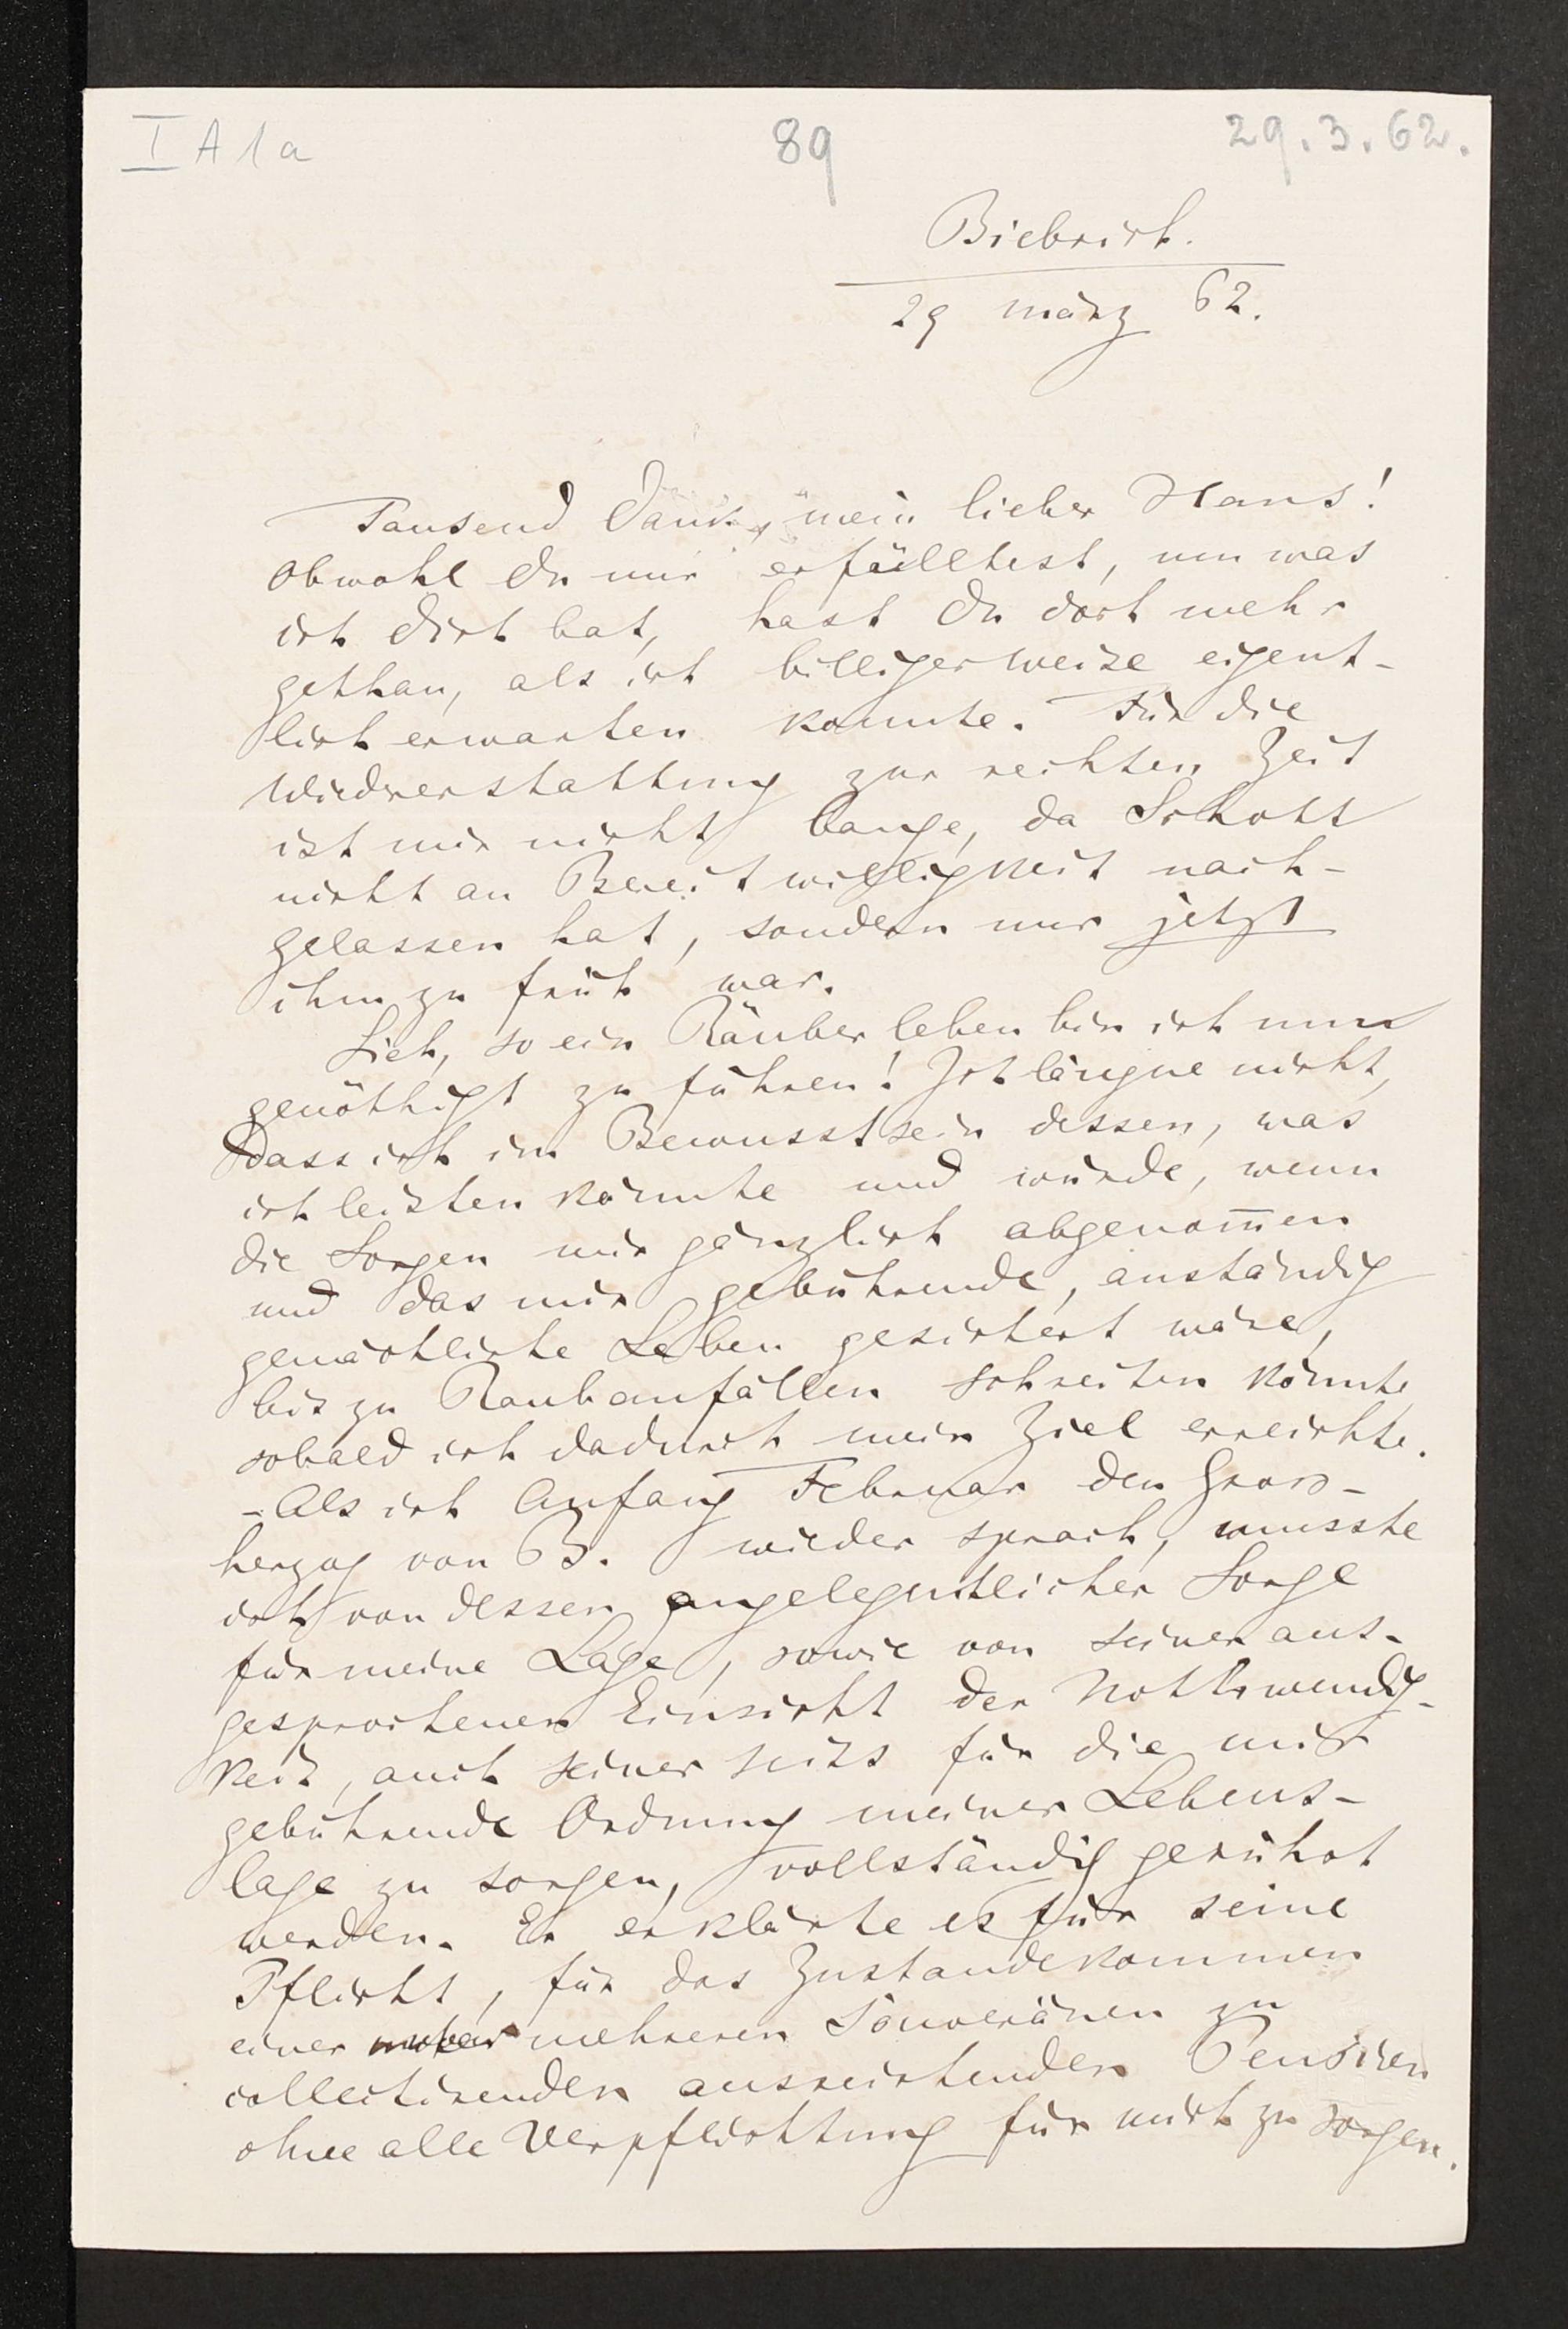 I A 1a
89
29.3.62.
Biebrich.
29 märz 62.
Tausend Dank, mein lieber Hans!
Obwohl Du mir erfülltest, um was
ich Dich bat, hast Du doch mehr
gethan, als ich billigerweise eigent-
lich erwarten konnte. Für die
Wiedererstattung zur rechten Zeit
ist mir nicht bange, da Schott
nicht an Bereitwilligkeit nach-
gelassen hat, sondern nur jetzt
ihm zu früh war.
Sieh, so ein Räuberleben bin ich nun
genöthigt zu führen! Ich läugne nicht,
dass ich im Bewusstsein dessen, was
ich leisten könnte und würde, wenn
die Sorgen mir gänzlich abgenom̅en
und das mir gebührende, anständig
gemächliche Leben gesichert wäre,
bis zu Raubanfällen schreiten könnte,
sobald ich dadurch mein Ziel erreichte.
- Als ich Anfang Februar den Gross-
herzog von B. wieder sprach, musste
ich von dessen angelegentlicher Sorge
für meine Lage, sowie von seiner aus-
gesprochenen Einsicht der Nothwendig-
keit, auch seiner seits für die mir
gebührende Ordnung meiner Lebens-
lage zu sorgen, vollständig gerührt
werden. Er erklärte es für seine
Pflicht, für das Zustandekommen
einer mehreren Souveränen zu
collectirenden ausreichenden Pension
ohne alle Verpflichtung für mich zu sorgen.